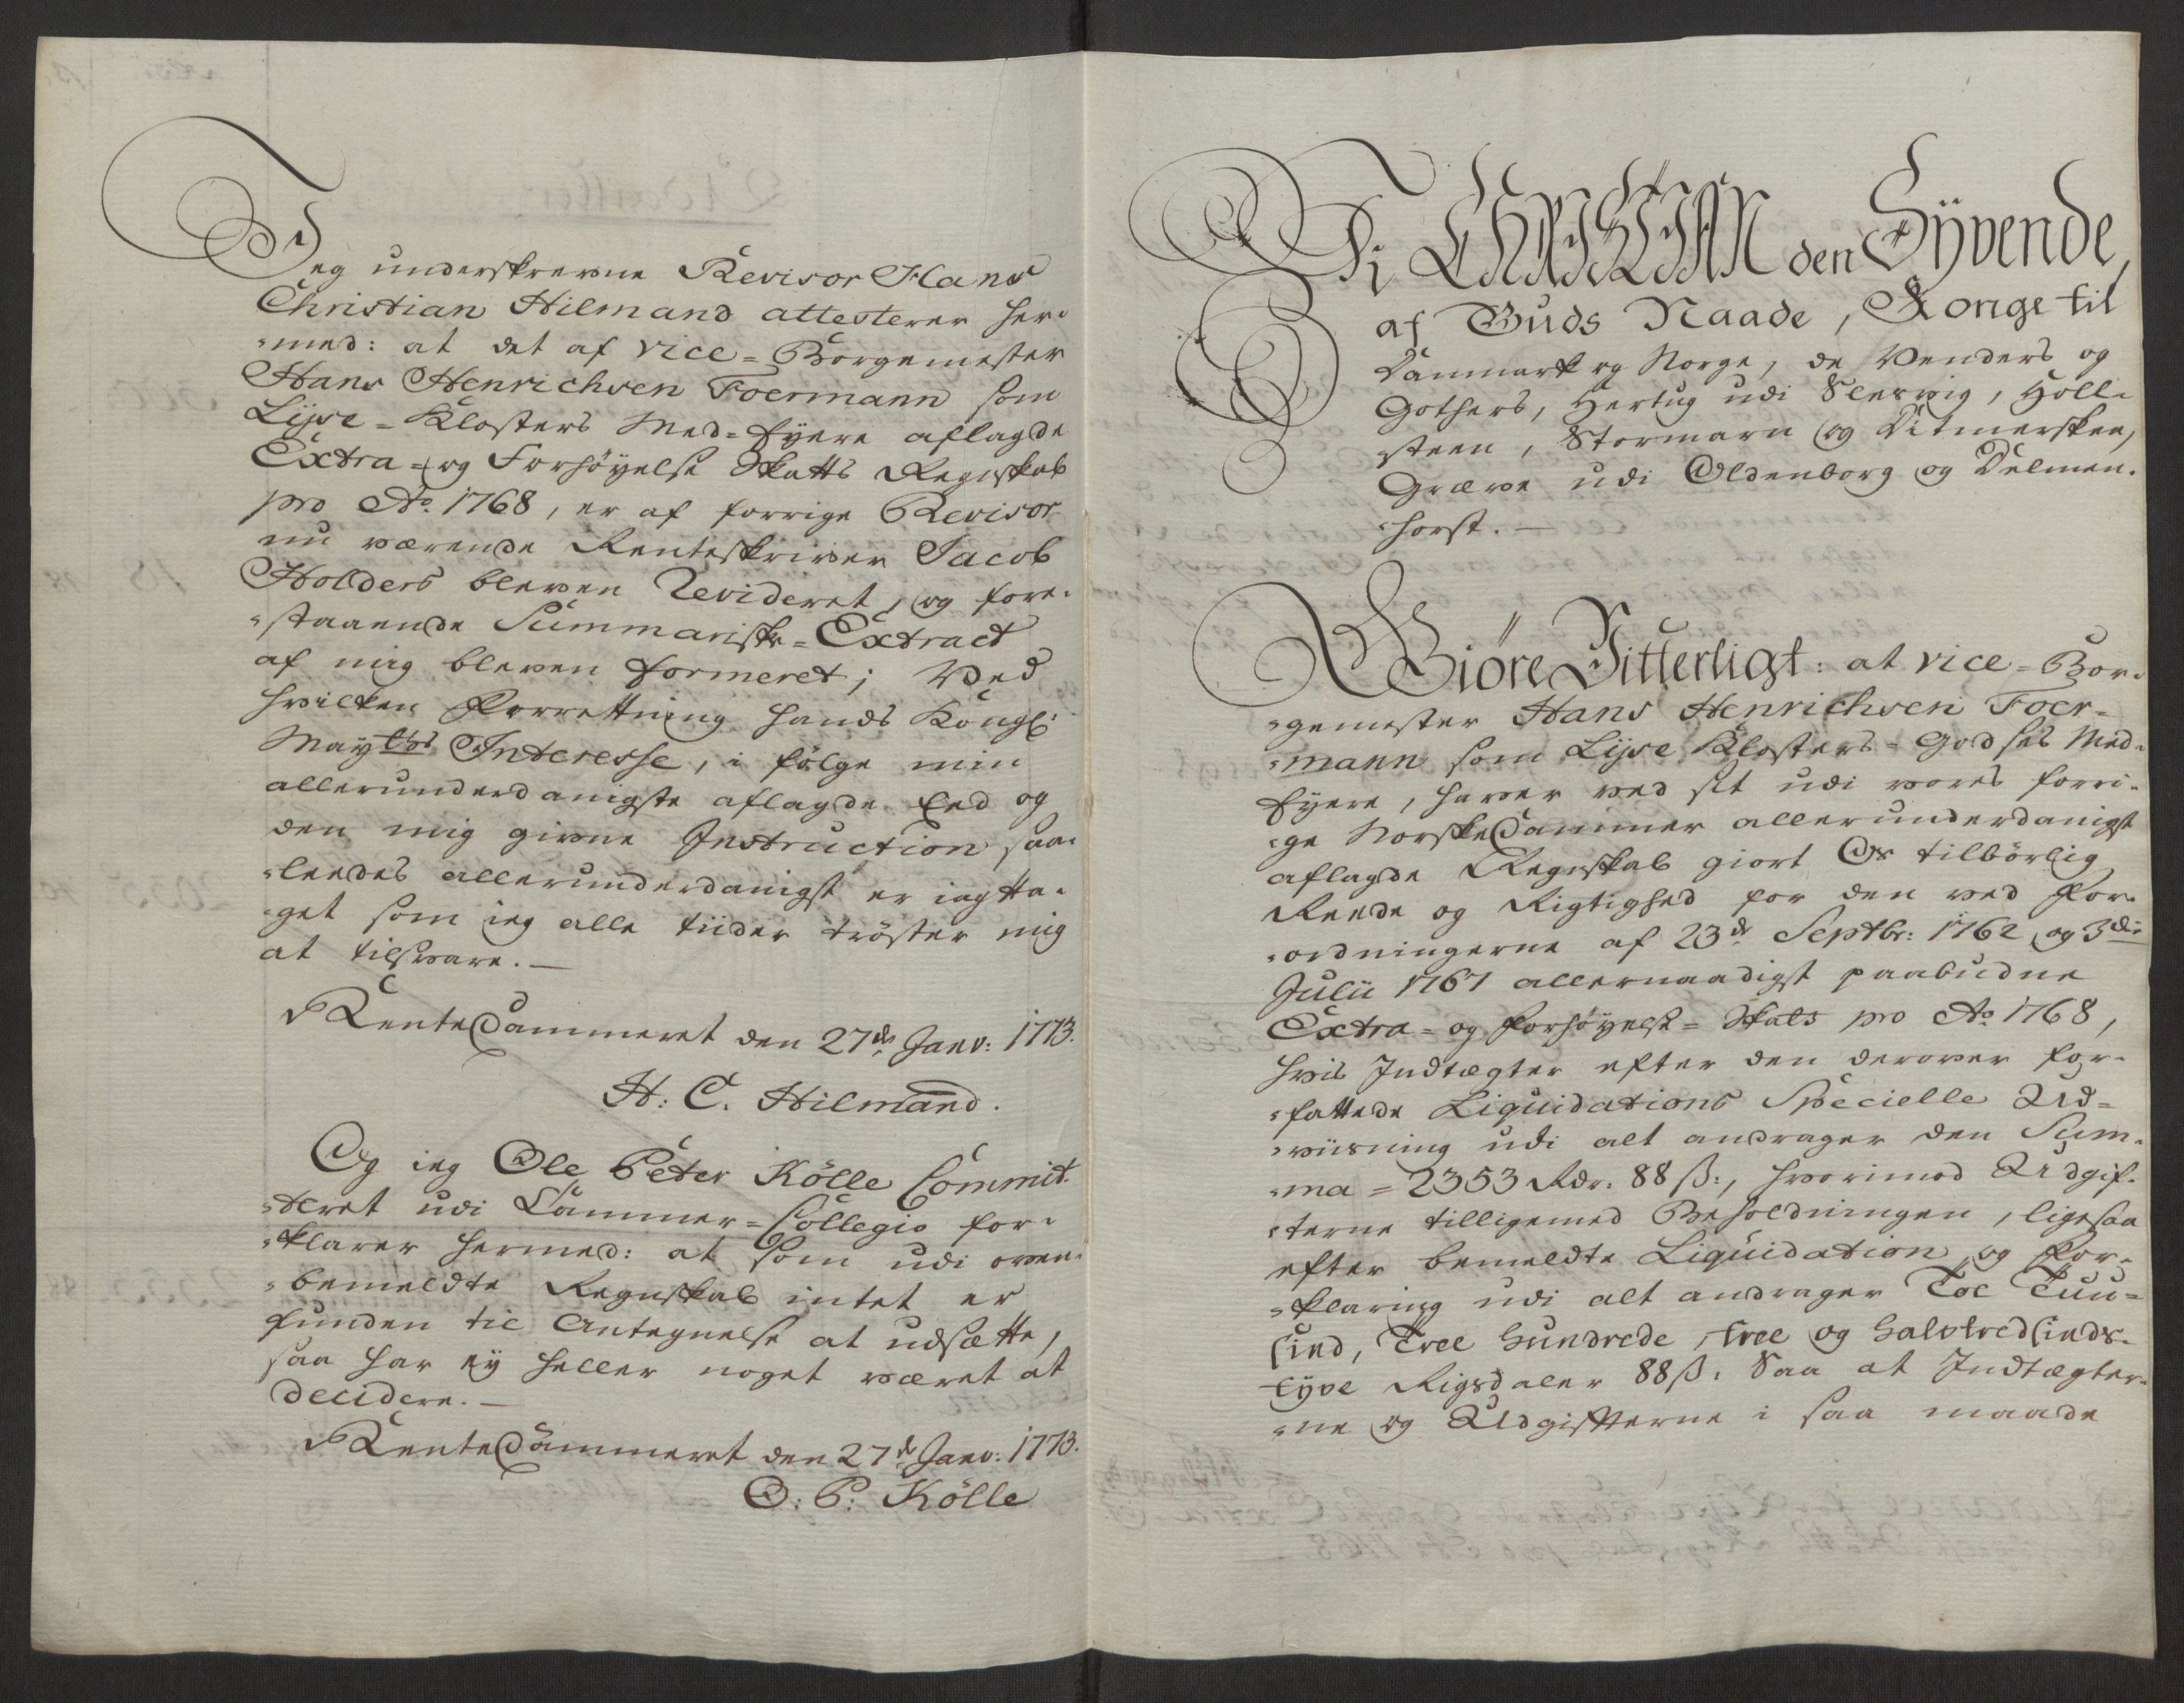 Jeg underskrevne Revisor Hans
Christian Hilmand attesterer her-
"med: at det af vice-Borgemester
Hans Henrichsen Foermann som
Lijse-Klosters Med-Eyere aflagde
Extra- og Forhøyelse Skatts Regnskab
pro Ao. 1768, er af forrige Revisor
nu værende Renteskriver Jacob
Holders bleven Revideret, og fore-
"staaende Summariske-Extract
af mig bleven formeret; Ved
hvilken Forrettning Hands Kongl:
Mayts Interesse, i følge min
allerunderdanigste aflagde Eed og
den mig givne Instruction saa-
"leedes allerunderdanigst er iagtta-
"get som ieg alle tiider trøster mig
at tilsvare.—
RenteCammeret den 27de Janv: 1773.
H: C. Hilmand.
Og ieg Ole Peter Kölle Commit-
"teret udi Cammer-Collegio for-
"klarer hermed: at som udi oven-
"bemeldte Regnskab intet er
funden til Antegnelse at udsætte,
saa har ey heller noget været at
decidere.—
RenteCammeret den 27de Janv: 1773.
O: P: Kölle
Vi CHRISTIAN den Syvende,
af Guds Naade, Konge til
Danmark og Norge, de Venders og
Gothers, Hertug udi Slesvig, Holl-
steen, Stormarn og Ditmersken,
Greve udi Oldenborg og Delmen-
"horst.—
Giöre Vitterligt: at vice-Bor-
"gemester Hans Henrichsen Foer-
"mann som Lijse Klosters-Godses Med-
Eyere, haver ved sit udi vores forri-
"ge NorskeCammer allerunderdanigst
aflagde Regnskab giort Os tilbörlig
Reede og Rigtighed for den ved For-
"ordningerne af 23de Septbr: 1762 og 3die
Julii 1767 allernaadigst paabudne
Extra- og Forhøyelse-Skats pro Ao 1768,
hvis Indtægter efter den derover for-
"fattede Liquidations Specielle Ud-
"viisning udi alt andrager den Sum-
"ma = 2353 Rdr. 88 ß:, hvorimod Udgif-
"terne tilligemed Beholdningen, ligesaa
efter bemeldte Liquidation og For-
"klaring udi alt andrager Toe Tuu-
sind, Tree Hundrede, tree og halvtredsinds-
tyve Rigsdaler 88 ß. Saa at Indtægter-
"ne og Udgifterne i saa maade